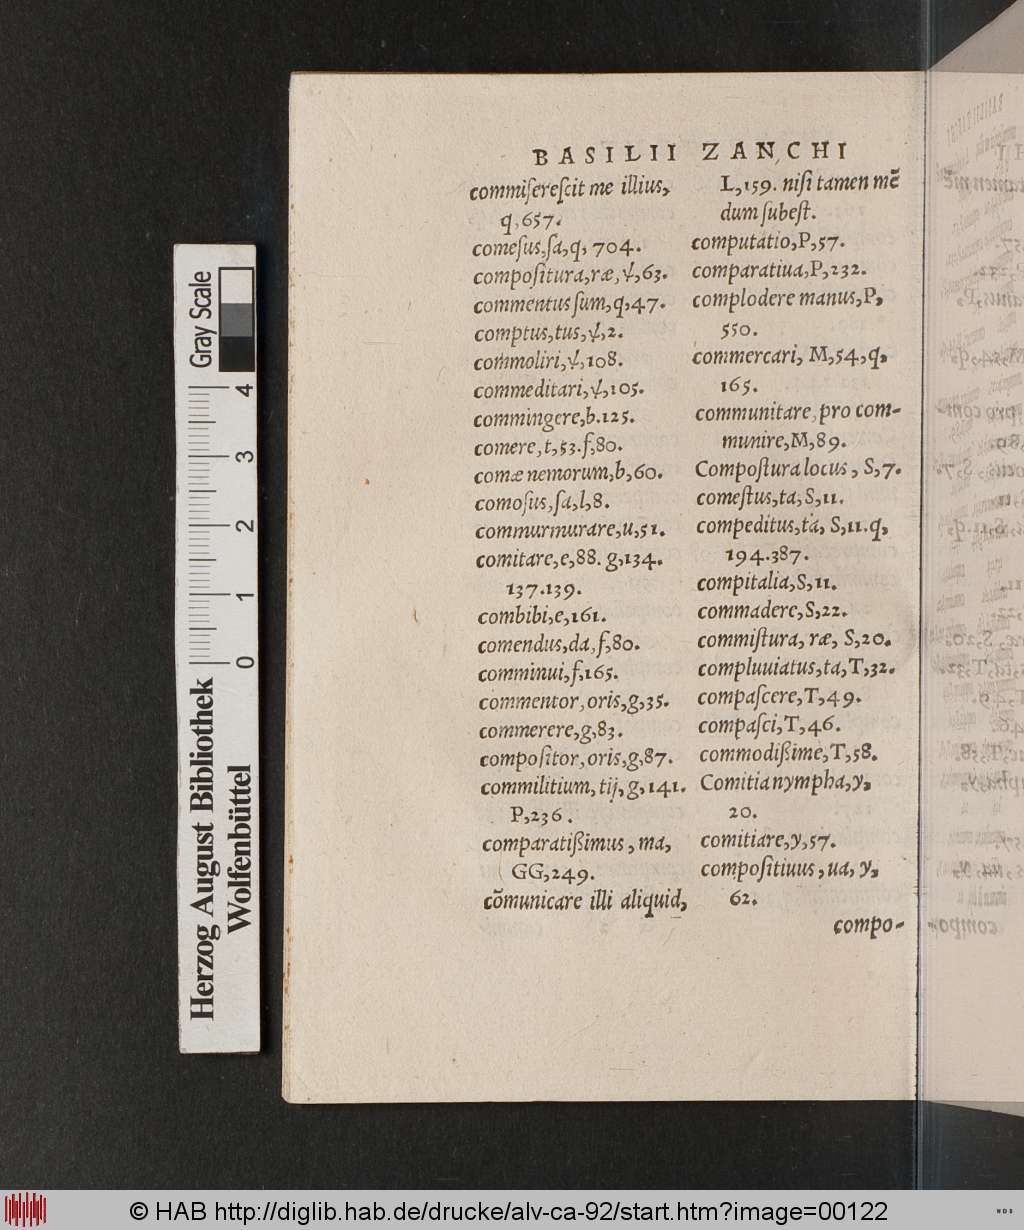 BASILII ZANCHI
commiſereſcit me illius,
q,657.
comeſus,ſa,q, 704.
compoſitura,ræ,ψ,63.
commentus ſum,q,47.
comptus,tus,ψ,2.
commoliri,ψ,108.
commeditari,ψ,105.
commingere,b.125.
comere,t,53.f,80.
comæ nemorum,b,60.
comoſus,ſa,l,8.
commurmurare,u,51.
comitare,e,88. g,134.
137.139.
combibi,e,161.
comendus,da,f,80.
comminui,f,165.
commentor,oris,g,35.
commerere,g,83.
compoſitor,oris,g,87.
commilitium,tij,g,141.
P,236.
comparatißimus, ma,
GG,249.
cōmunicare illi aliquid,
L,159. niſi tamen mē
dum ſubeſt.
computatio,P,57.
comparatiua,P,232.
complodere manus,P,
550.
commercari, M,54,q,
165.
communitare, pro com-
munire,M,89.
Compoſtura locus, S,7.
comeſtus,ta,S,11.
compeditus,ta, S,11.q,
194.387.
compitalia,S,11.
commadere,S,22.
commiſtura, ræ, S,20.
compluuiatus,ta,T,32.
compaſcere,T,49.
compaſci,T,46.
commodißime,T,58.
Comitia nympha,y,
20.
comitiare,y,57.
compoſitiuus, ua, y,
62.
compo-
Gray Scale
4
3
2
1
0
Herzog August Bibliothek
Wolfenbüttel
© HAB http://diglib.hab.de/drucke/alv-ca-92/start.htm?image=00122
WDB